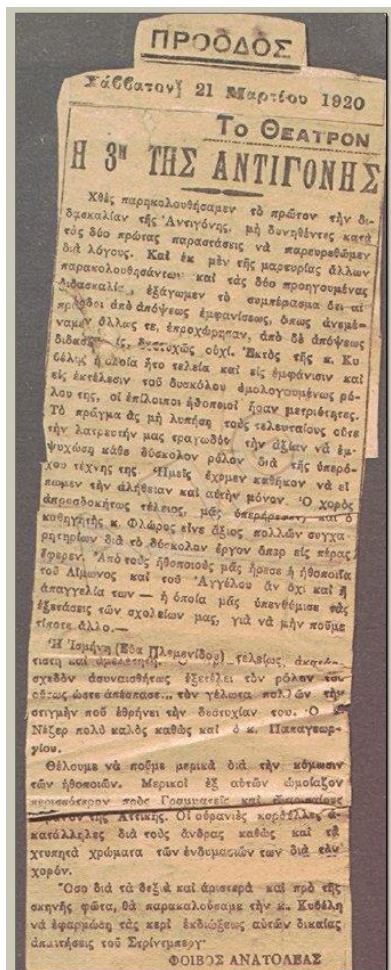 ΠΡΟΟΔΟΣ
Σάββατον 21 Μαρτίου 1920
Το ΘΕΑΤΡΟΝ
Η 3η ΤΗΣ ΑΝΤΙΓΟΝΗΣ
Χθὲς παρηκολουθήσαμεν τὸ πρῶτον τὴν δι-
δασκαλίαν τῆς Ἀντιγόνης, μὴ δυνηθέντες κατὰ
τὰς δύο πρώτας παραστάσεις νὰ παρευρεθῶμεν
διὰ λόγους. Καὶ ἐκ μὲν τῆς μαρτυρίας ἄλλων
παρακολουθησάντων καὶ τὰς δύο προηγουμένας
διδασκαλίας, ἐξάγωμεν τὸ συμπέρασμα ὅτι αἱ
πρόοδοι ἀπὸ ἀπόψεως ἐμφανίσεως, ὅπως ἀνεμέ-
ναμεν ἄλλως τε, ἐπροχώρησαν, ἀπὸ δὲ ἀπόψεως
δυστυχῶς οὐχί. Ἐκτὸς τῆς κ. Κυ-
βέλης ἡ ὁποία ἦτο τελεία καὶ εἰς ἐμφάνισιν καὶ
εἰς ἐκτέλεσιν τοῦ δυσκόλου ὁμολογουμένως ρό-
λου της, οἱ ἐπίλοιποι ἠθοποιοὶ ἦσαν μετριότητες.
Τὸ πρᾶγμα ἂς μὴ λυπήσῃ τοὺς τελευταίους οὔτε
τὴν λατρευτήν μας τραγωδὸν τὴν ἀξίαν νὰ ἐμ-
ψυχώσῃ κάθε δύσκολον ρόλον διὰ τῆς ὑπερό-
χου τέχνης της. Ἡμεῖς ἔχομεν καθῆκον νὰ εἴ-
πωμεν τὴν ἀλήθειαν καὶ αὐτὴν μόνον. Ὁ χορὸς
ἀπροσδοκήτως τέλειος, μᾶς ὑπερήρεσεν καὶ ὁ
καθηγητὴς κ. Φλῶρος εἶνε ἄξιος πολλῶν συγχα-
ρητηρίων διὰ τὸ δύσκολον ἔργον ὅπερ εἰς πέρας
ἔφερεν. Ἀπὸ τοὺς ἠθοποιοὺς μᾶς ἤρεσε ἡ ἠθοποιΐα
τοῦ Αἵμωνος καὶ τοῦ Ἀγγέλου ἂν ὄχι καὶ ἡ
ἀπαγγελία των — ἡ ὁποία μᾶς ὑπενθύμισε τὰς
ἐξετάσεις τῶν σχολείων μας, γιὰ νὰ μὴν ποῦμε
τίποτε ἄλλο.—
Ἡ Ἰσμήνη (Εδα Πλεμενίδου) τελείως
καὶ ἀμελέτητη
σχεδὸν ἀσυναισθήτως ἐξετέλει τὸν ρόλον
οὕτως ὥστε ἀπέσπασε.. τὸν γέλωτα πολλῶν τὴν
στιγμὴν ποῦ ἐθρήνει τὴν δυστυχίαν του. Ὁ κ
Νέζερ πολὺ καλὸς καθὼς καὶ ὁ κ. Παπαγεωρ-
γίου.
Θέλουμε νὰ ποῦμε μερικὰ διὰ τὴν κόμωσιν
τῶν ἠθοποιῶν. Μερικοὶ ἐξ αὐτῶν ὡμοίαζον
περισσότερον πρὸς Γραμματεῖς καὶ
τῆς Ἀττικῆς. Οἱ οὐρανιὲς κορδέλλες ἀ-
κατάλληλες διὰ τοὺς ἄνδρας καθὼς καὶ τὰ
χτυπητὰ χρώματα τῶν ἐνδυμασιῶν των διὰ τὸν
χορόν.
Ὅσο διὰ τὰ δεξιὰ καὶ ἀριστερὰ καὶ πρὸ τῆς
σκηνῆς φῶτα, θὰ παρακαλούσαμε τὴν κ. Κυβέλη
νὰ ἐφαρμόσῃ τὰς περὶ ἐκδιώξεως αὐτῶν δικαίας
ἀπαιτήσεις τοῦ Στρίντμπεργ.
ΦΟΙΒΟΣ ΑΝΑΤΟΛΕΑΣ